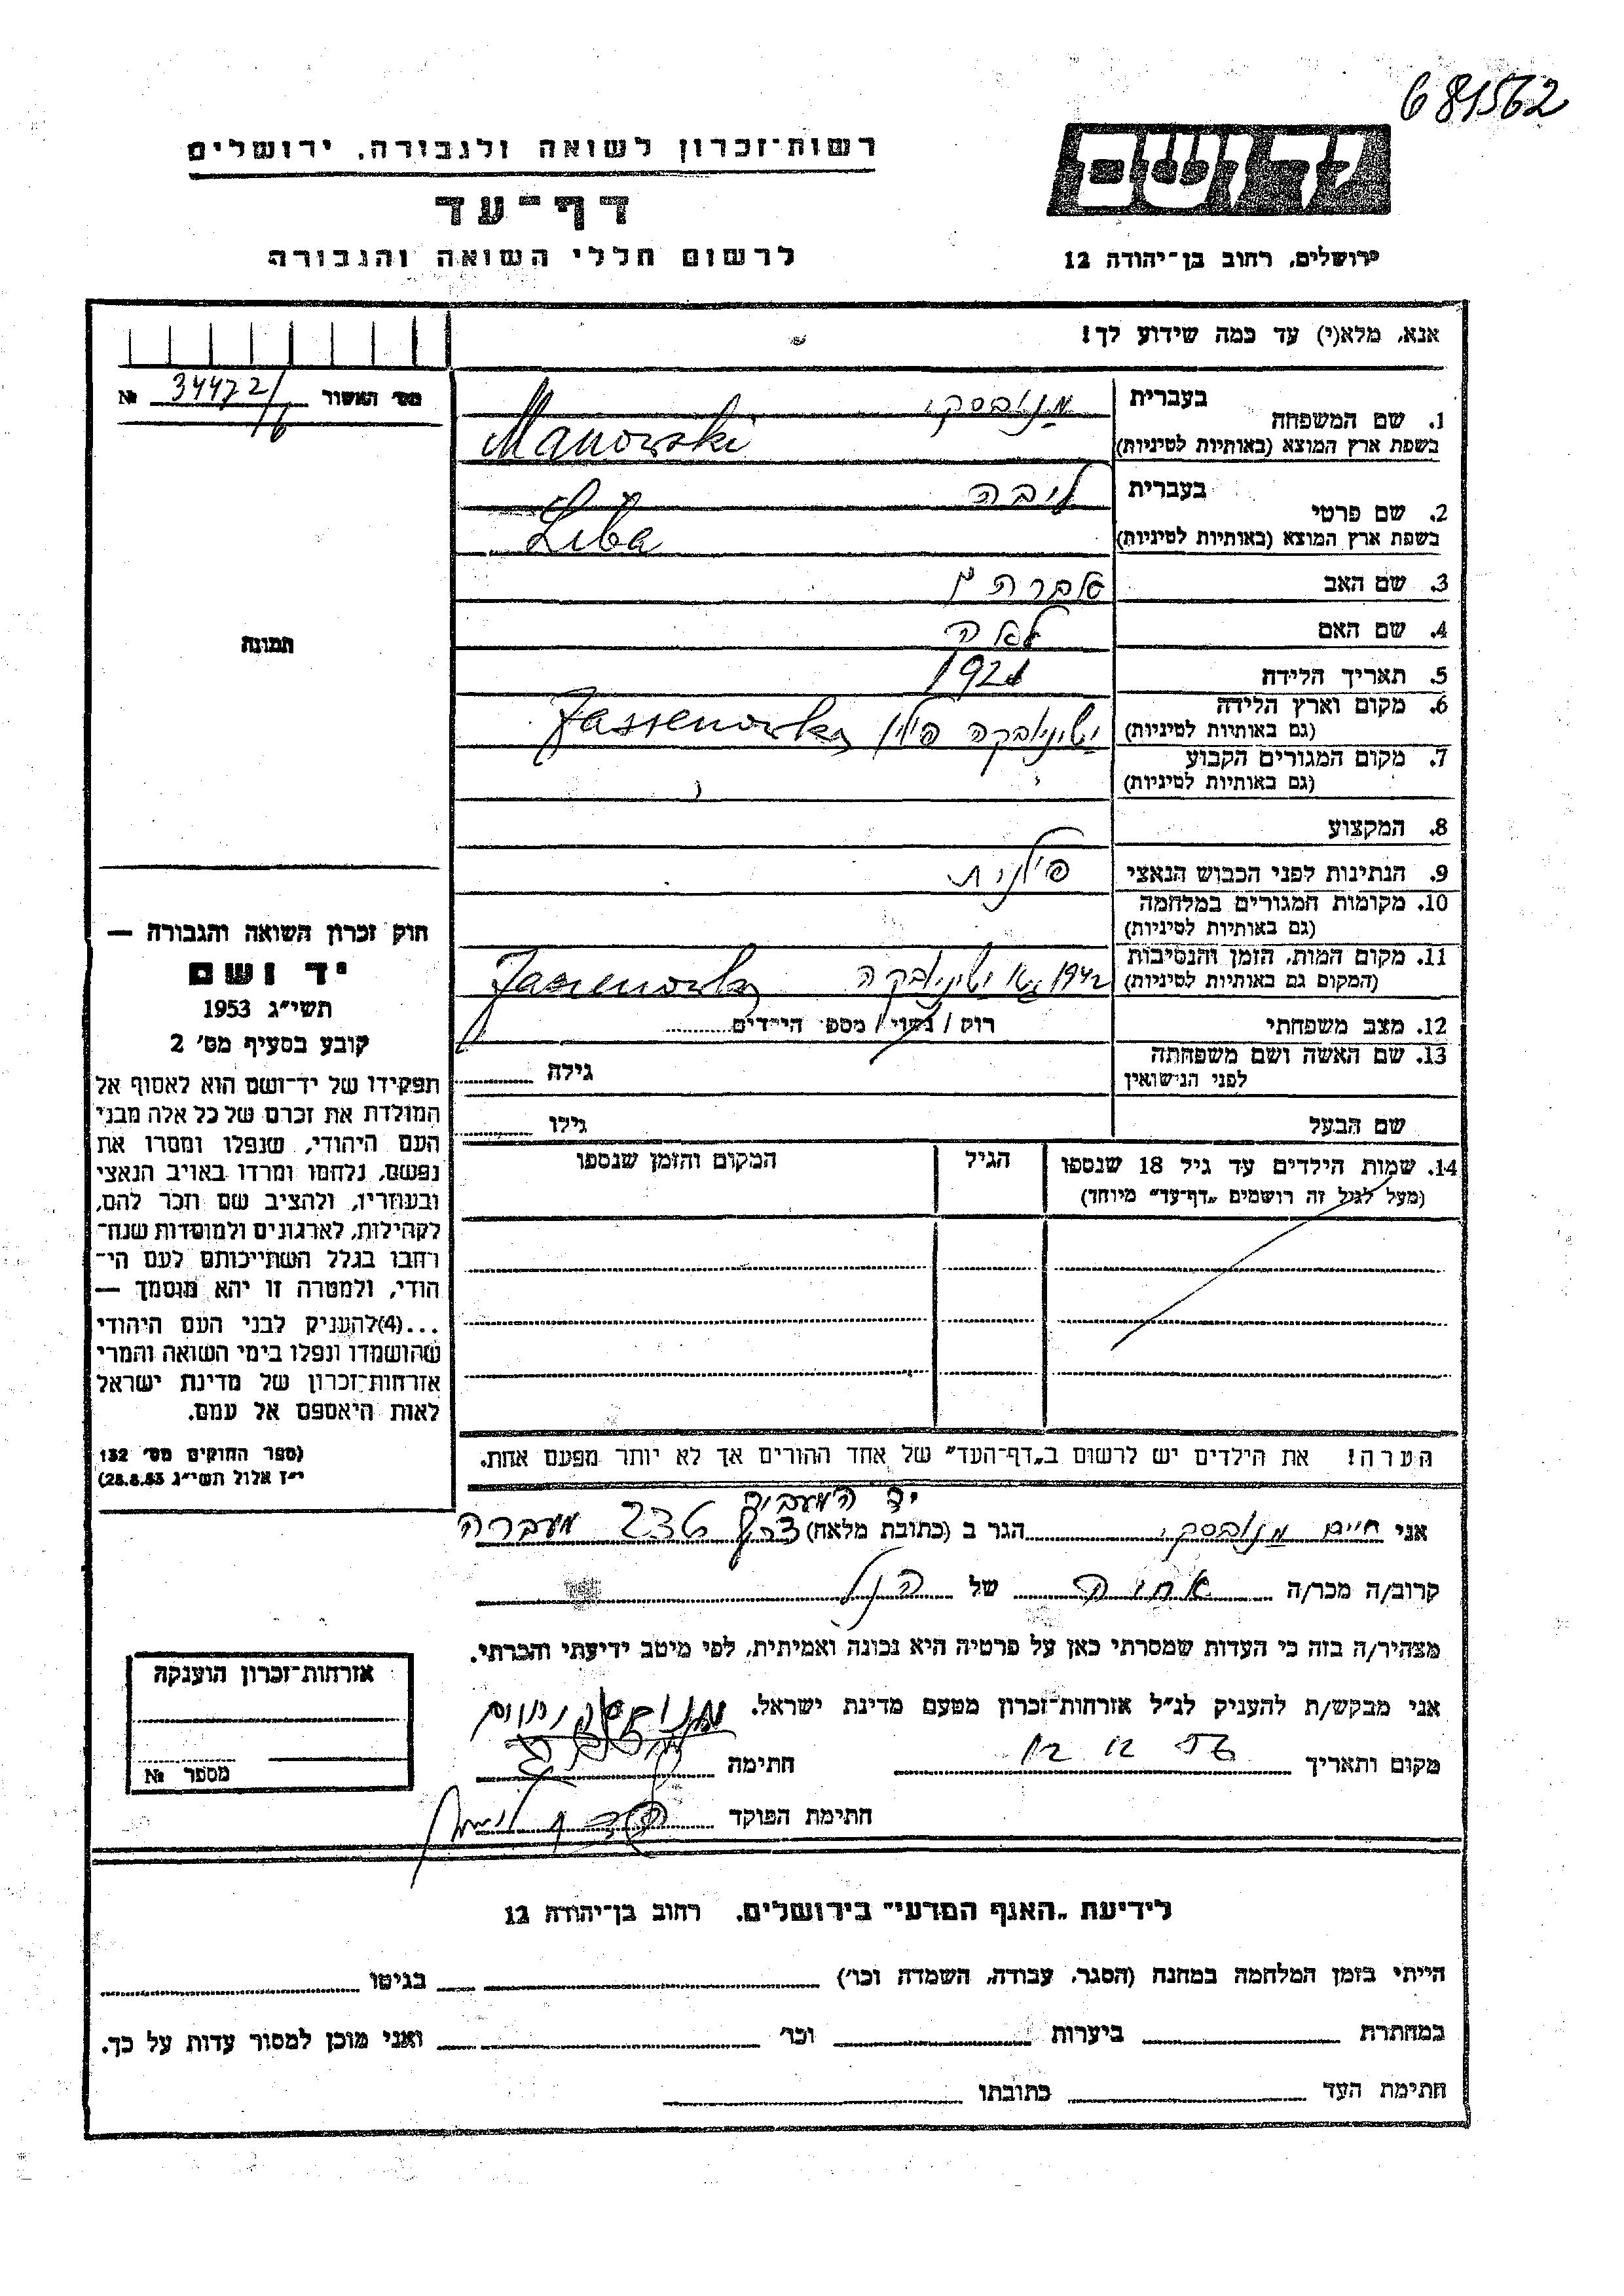 681562
רשות־זכרון לשואה ולגבורה, ירושלים
יד ושם
דף־עד
לרשום חללי השואה והגבורה
ירושלים, רחוב בן־יהודה 12
אנא, מלא(י) עד כמה שידוע לך!
מס׳ האשור 34472/16 №
1. שם המשפחה
בעברית מנובסקי
בשפת ארץ המוצא (באותיות לטיניות) Manowski
2. שם פרטי
בעברית ליבה
בשפת ארץ המוצא (באותיות לטיניות) Liba
3. שם האב אברהם
4. שם האם
5. תאריך הלידה
6. מקום וארץ הלידה
(גם באותיות לטיניות) ישינובקה פולין Jassenowka
7. מקום המגורים הקבוע
(גם באותיות לטיניות)
8. המקצוע
9. הנתינות לפני הכבוש הנאצי פולנית
10. מקומות המגורים במלחמה
(גם באותיות לטיניות)
11. מקום המות, הזמן והנסיבות
(המקום גם באותיות לטיניות) 1942 ישינובקה Jassenowka
12. מצב משפחתי רוק / נשוי / מספ׳ הילדים
13. שם האשה ושם משפחתה
לפני הנישואין גילה
שם הבעל גילו
14. שמות הילדים עד גיל 18 שנספו
(מעל לגיל זה רושמים „דף־עד״ מיוחד)
הגיל
המקום והזמן שנספו
הערה! את הילדים יש לרשום ב„דף־העד״ של אחד ההורים אך לא יותר מפעם אחת.
תמונה
חוק זכרון השואה והגבורה —
יד ושם
תשי״ג 1953
קובע בסעיף מס׳ 2
תפקידו של יד־ושם הוא לאסוף אל
המולדת את זכרם של כל אלה מבני
העם היהודי, שנפלו ומסרו את
נפשם, נלחמו ומרדו באויב הנאצי
ובעוזריו, ולהציב שם וזכר להם,
לקהילות, לארגונים ולמוסדות שנח־
רחבו בגלל השתייכותם לעם הי־
הודי, ולמטרה זו יהא מוסמך —
...(4)להעניק לבני העם היהודי
שהושמדו ונפלו בימי השואה והמרי
אזרחות־זכרון של מדינת ישראל
לאות היאספם אל עמם.
(ספר החוקים מס׳ 132
י״ז אלול תשי״ג 28.8.53)
אני חיים מנובסקי הגר ב (כתובת מלאה) צריף 232 מעברה
קרוב/ה מכר/ה של הנ״ל
מצהיר/ה בזה כי העדות שמסרתי כאן על פרטיה היא נכונה ואמיתית, לפי מיטב ידיעתי והכרתי.
אני מבקש/ת להעניק לנ״ל אזרחות־זכרון מטעם מדינת ישראל. מנובסקי חיים
מקום ותאריך 12 12 56 חתימה
חתימת הפוקד
אזרחות־זכרון הוענקה
מספר №
לידיעת „האגף המדעי״ בירושלים, רחוב בן־יהודה 12
הייתי בזמן המלחמה במחנה (הסגר, עבודה, השמדה וכו׳) בגיטו
במחתרת ביערות וכו׳ ואני מוכן למסור עדות על כך.
חתימת העד כתובתו